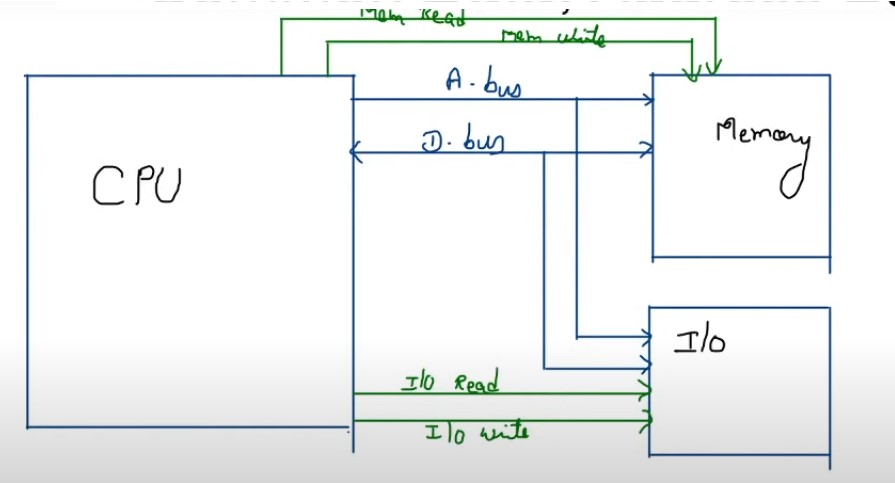 Mem Read
Mem write
A. bus
D. bus
CPU
Memory
I/O
I/O Read
I/O write